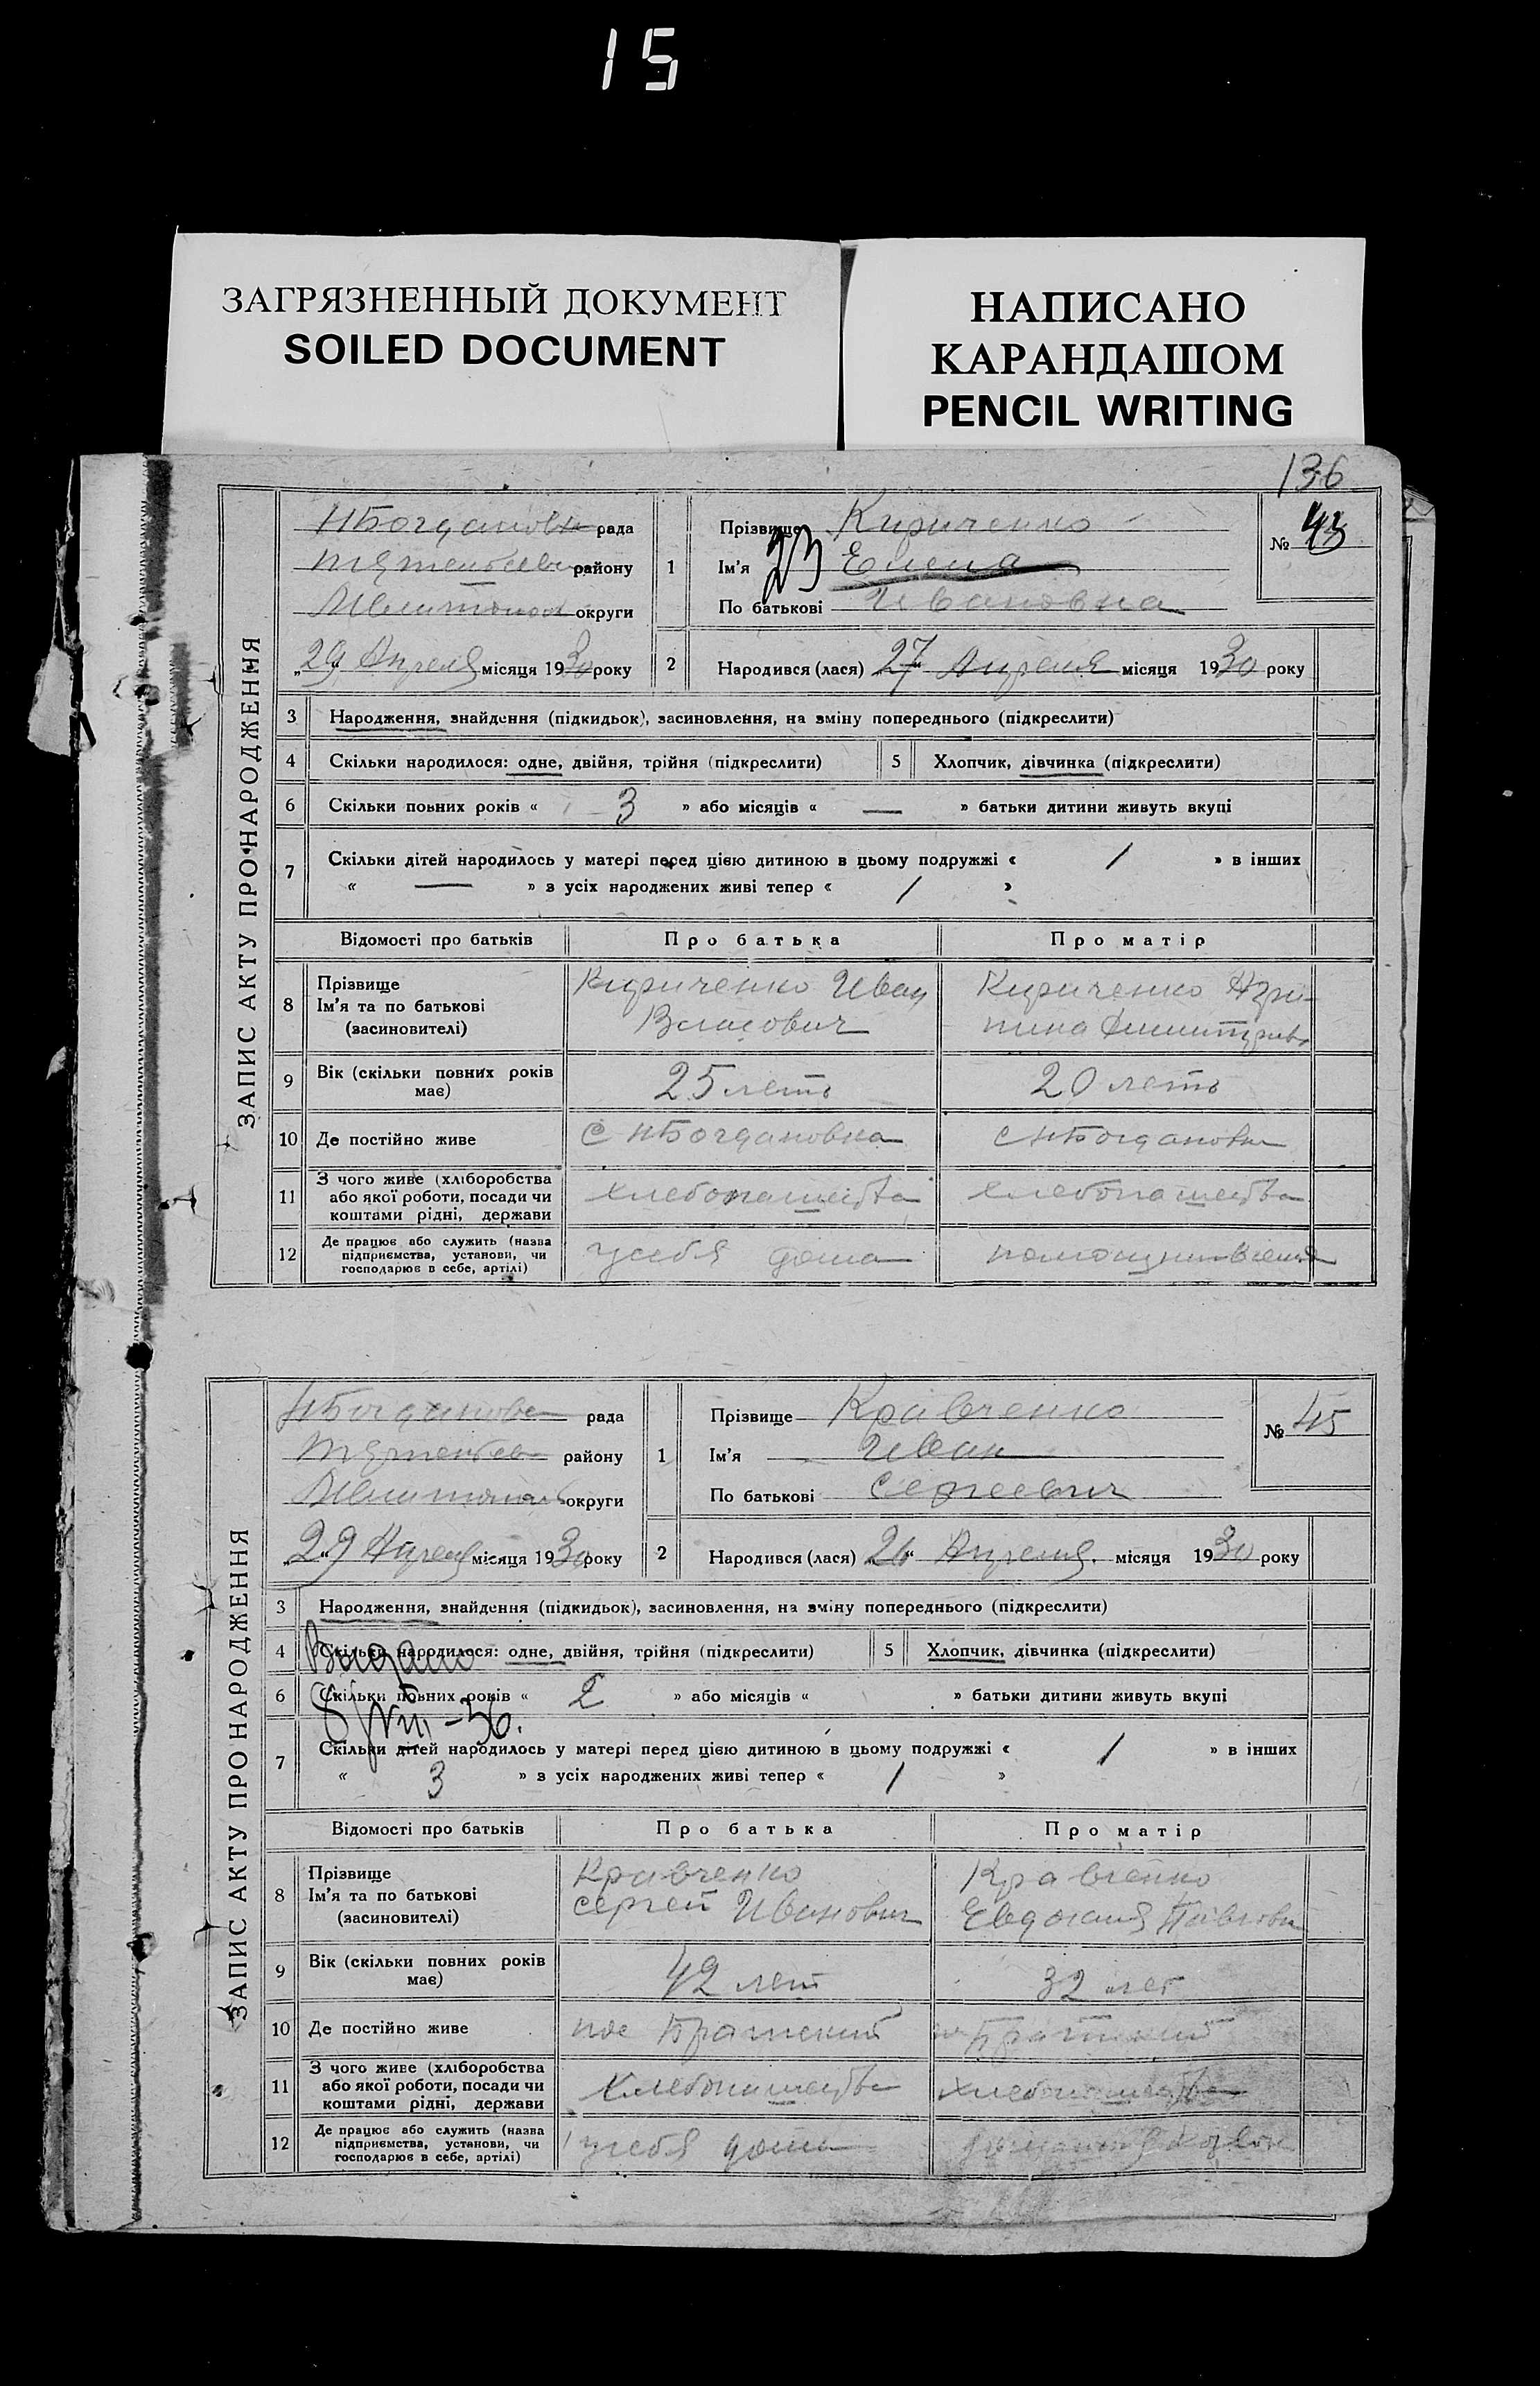 15
ЗАГРЯЗНЕННЫЙ ДОКУМЕНТ
SOILED DOCUMENT
НАПИСАНО
КАРАНДАШОМ
PENCIL WRITING
136
ЗАПИС АКТУ ПРО НАРОДЖЕННЯ
НБогдановка рада
району
округи
„29" Апреля місяця 1930 року
1
Прізвище Кириченко
Ім'я Елена
23
По батькові Ивановна
№ 43
2 Народився (лася) „27" Апреля місяця 1930 року
3 Народження, знайдення (підкидьок), засиновлення, на зміну попереднього (підкреслити)
4 Скільки народилося: одне, двійня, трійня (підкреслити) 5 Хлопчик, дівчинка (підкреслити)
6 Скільки повних років « 3 » або місяців « — » батьки дитини живуть вкупі
7 Скільки дітей народилось у матері перед цією дитиною в цьому подружжі « 1 » в інших
« — » з усіх народжених живі тепер « 1 »
Відомості про батьків Про батька Про матір
8 Прізвище
Ім'я та по батькові
(засиновителі)
Кириченко Иван
Власович
Кириченко Агри-
пина
9 Вік (скільки повних років
має)
25 летъ 20 летъ
10 Де постійно живе с НБогдановка с НБогдановка
11 З чого живе (хліборобства
або якої роботи, посади чи
коштами рідні, держави
хлебопашества хлебопашества
12 Де працює або служить (назва
підприємства, установи, чи
господарює в себе, артілі)
усебя дома
ЗАПИС АКТУ ПРО НАРОДЖЕННЯ
НБогдановка рада
району
округи
„29" Апреля місяця 1930 року
1
Прізвище Кравченко
Ім'я Иван
По батькові Сергеевич
№ 45
2 Народився (лася) „26" Апреля місяця 1930 року
3 Народження, знайдення (підкидьок), засиновлення, на зміну попереднього (підкреслити)
4 Скільки народилося: одне, двійня, трійня (підкреслити) 5 Хлопчик, дівчинка (підкреслити)
Видано
6 Скільки повних років « 2 » або місяців « » батьки дитини живуть вкупі
7 Скільки дітей народилось у матері перед цією дитиною в цьому подружжі « 1 » в інших
« 3 » з усіх народжених живі тепер « 1 »
Відомості про батьків Про батька Про матір
8 Прізвище
Ім'я та по батькові
(засиновителі)
Кравченко
Сергей Иванович
Кравченко
Евдокия Павловн
9 Вік (скільки повних років
має)
42 лет 32 лет
10 Де постійно живе пос Братский Братский
11 З чого живе (хліборобства
або якої роботи, посади чи
коштами рідні, держави
хлебопашества хлебопашества
12 Де працює або служить (назва
підприємства, установи, чи
господарює в себе, артілі)
усебя дома